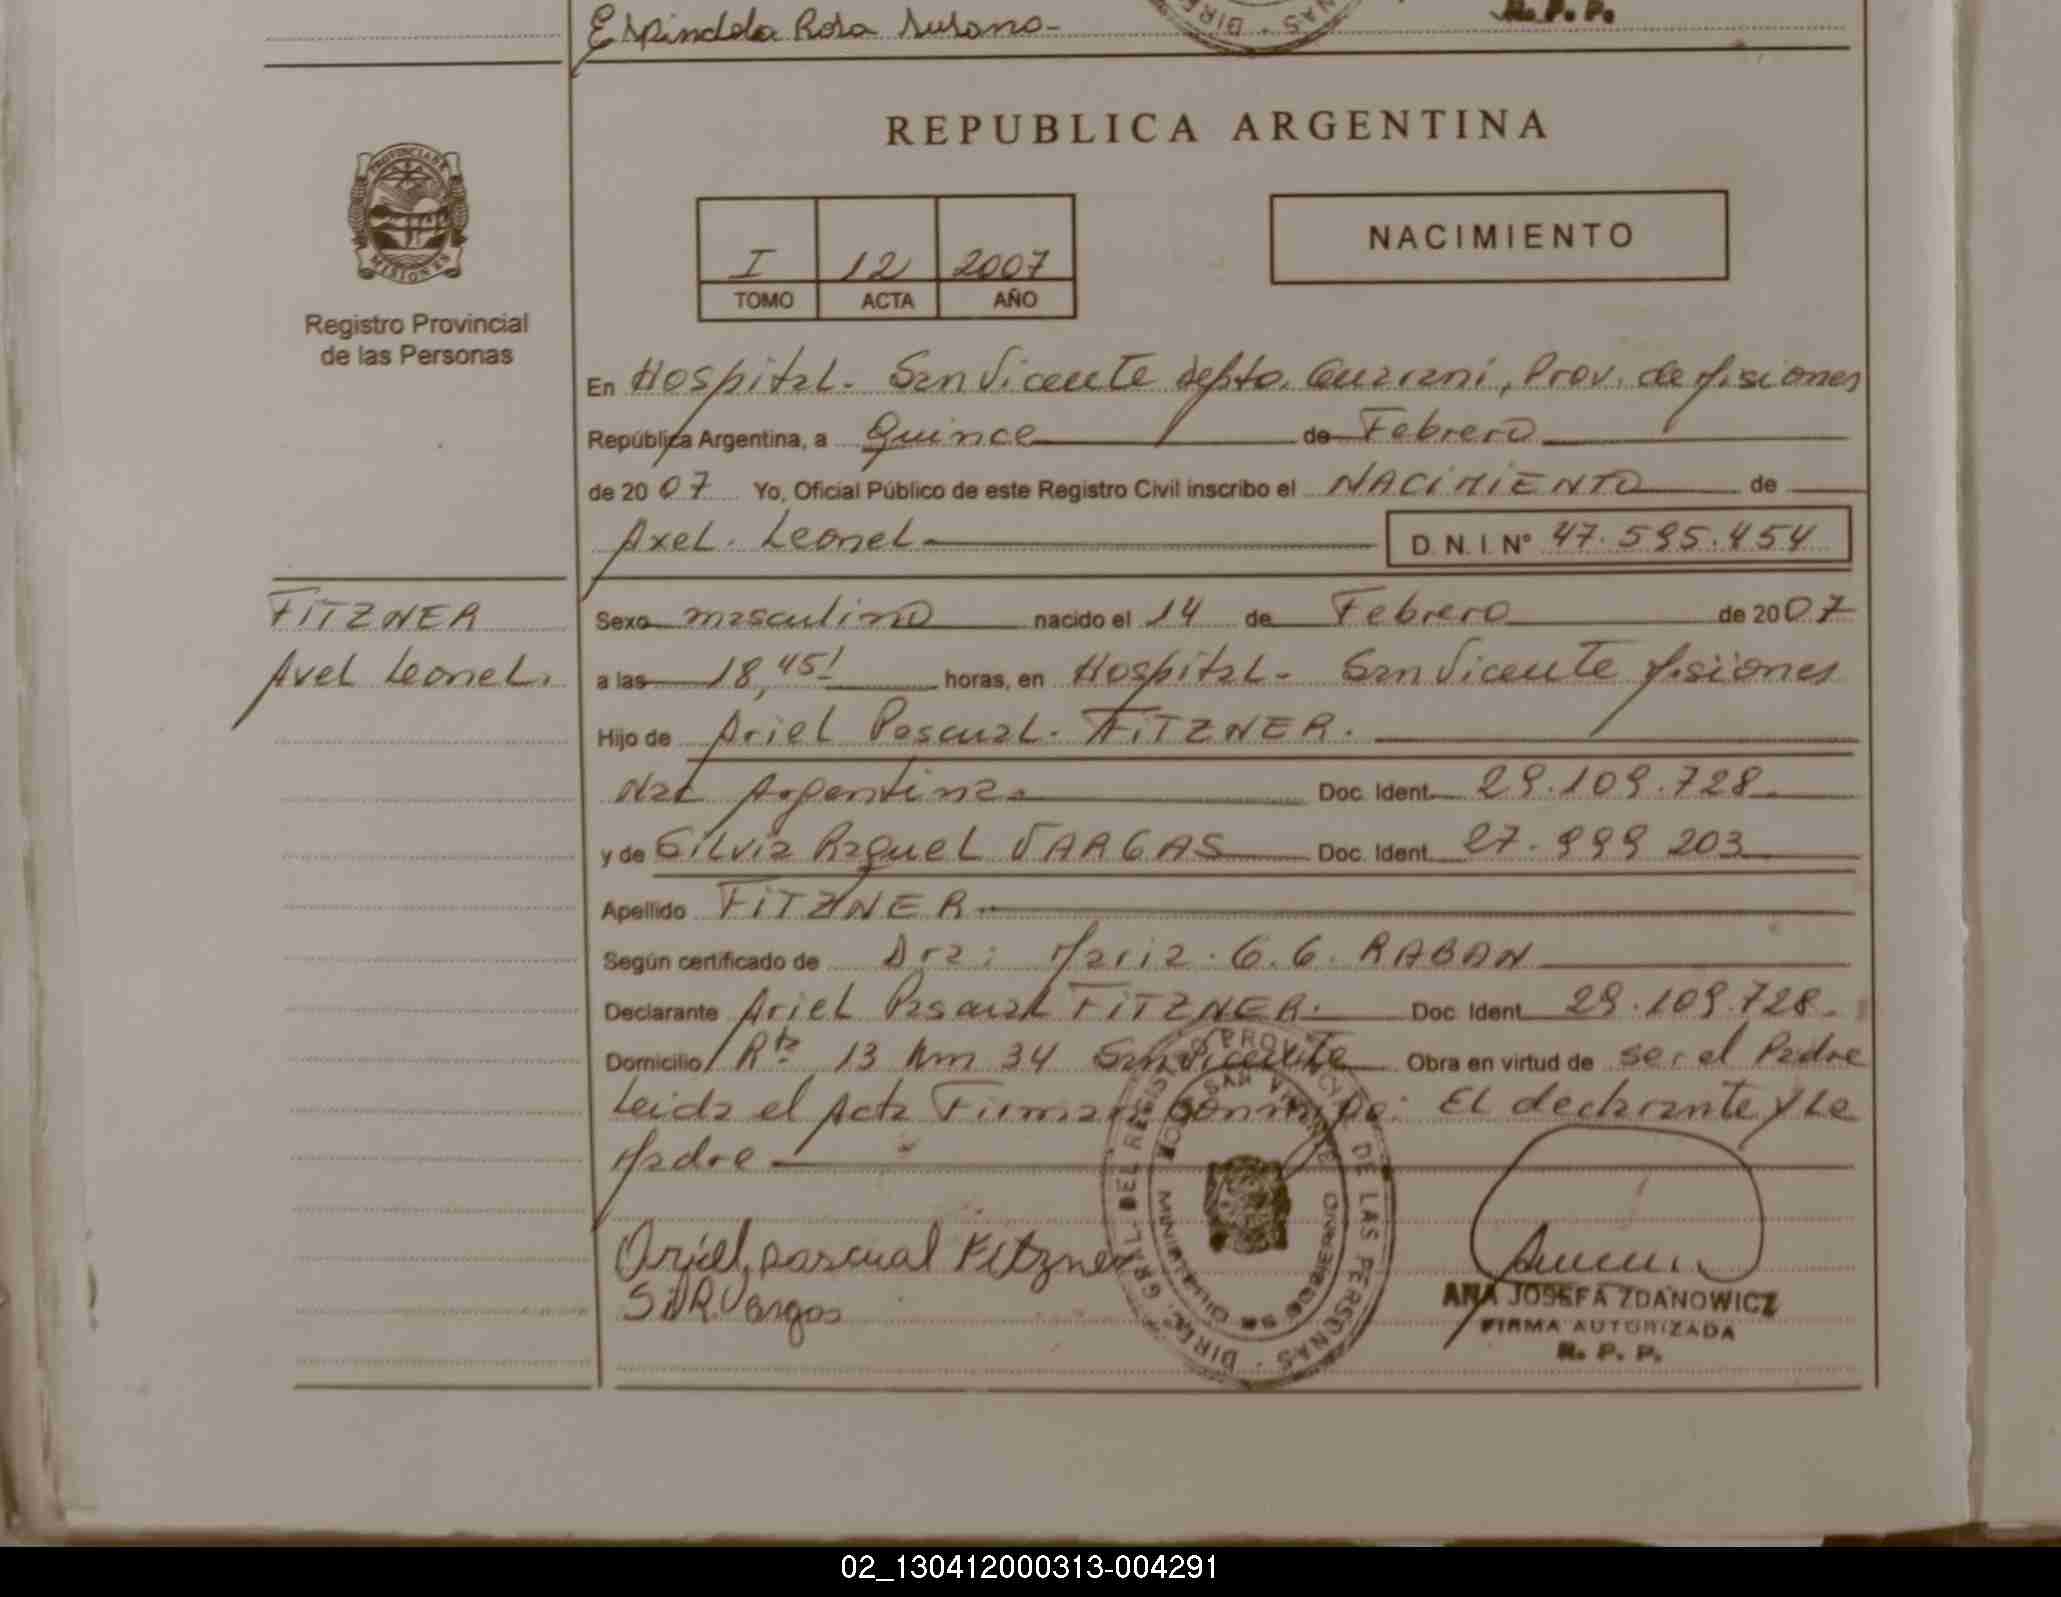 Espindola Rosa Susana-
R. P. P.
PROVINCIA DE
MISIONES
Registro Provincial
de las Personas
REPUBLICA ARGENTINA
I 12 2007
TOMO ACTA AÑO
NACIMIENTO
En Hospital. San Vicente depto. Guarani, Prov. de Misiones
República Argentina, a Quince de Febrero
de 2007 Yo, Oficial Público de este Registro Civil inscribo el NACIMIENTO de
Axel. Leonel D. N. I. Nº 47.595.454
FITZNER
Axel Leonel.
Sexo masculino nacido el 14 de Febrero de 2007
a las 18,45' horas, en Hospital - San Vicente Misiones
Hijo de Ariel Pascual. FITZNER.
Nac Argentina. Doc. Ident. 29.109.728
y de Silvia Raquel VARGAS Doc. Ident. 27.999 203
Apellido FITZNER.
Según certificado de Dra: Maria. G. G. RABAN
Declarante Ariel Pascual FITZNER. Doc. Ident. 29.109.728.
Domicilio Rta 13 Km 34 San Vicente Obra en virtud de ser el Padre
Leida el Acta Firman conmigo: El declarante y La
Madre
Ariel pascual Fitzner
S.R. Vargas
DIREC. GRAL. DEL REGISTRO PROVINCIAL DE LAS PERSONAS
ANA JOSEFA ZDANOWICZ
FIRMA AUTORIZADA
R. P. P.
02_130412000313-004291